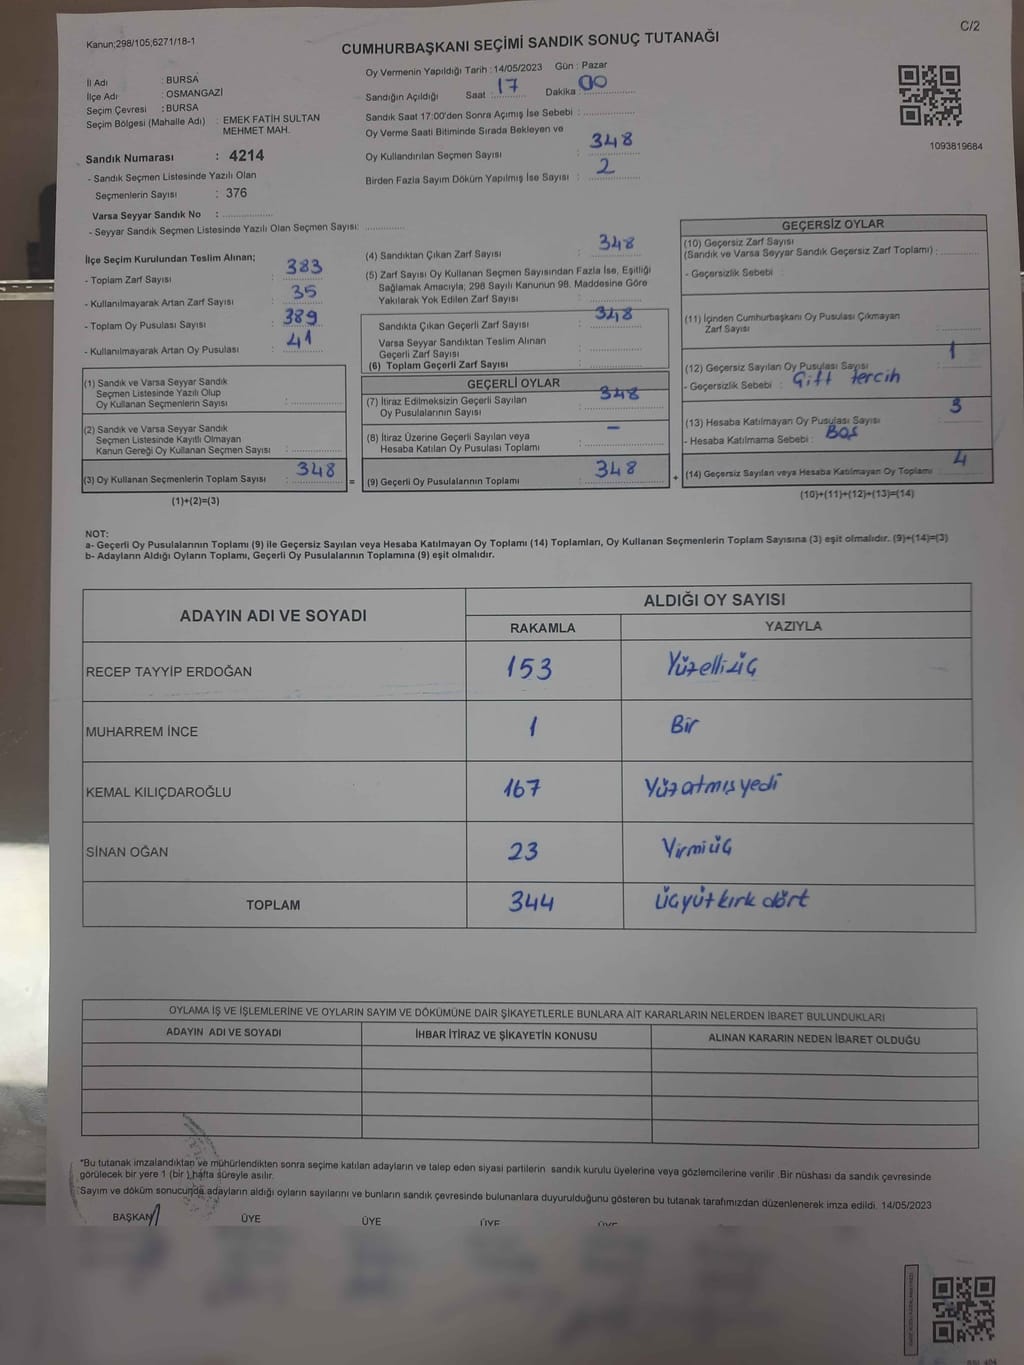 Kanun;298/105;6271/18-1
C/2
CUMHURBAŞKANI SEÇİMİ SANDIK SONUÇ TUTANAĞI
İl Adı : BURSA
İlçe Adı : OSMANGAZİ
Seçim Çevresi : BURSA
Seçim Bölgesi (Mahalle Adı) : EMEK FATİH SULTAN
MEHMET MAH.
Sandık Numarası : 4214
- Sandık Seçmen Listesinde Yazılı Olan
Seçmenlerin Sayısı : 376
Varsa Seyyar Sandık No : ..................
- Seyyar Sandık Seçmen Listesinde Yazılı Olan Seçmen Sayısı: ..............
Oy Vermenin Yapıldığı Tarih : 14/05/2023 Gün : Pazar
Sandığın Açıldığı Saat : 17 Dakika : 00
Sandık Saat 17:00'den Sonra Açımış İse Sebebi : ..................
Oy Verme Saati Bitiminde Sırada Bekleyen ve
Oy Kullandırılan Seçmen Sayısı : 348
Birden Fazla Sayım Döküm Yapılmış İse Sayısı : 2
1093819684
İlçe Seçim Kurulundan Teslim Alınan;
- Toplam Zarf Sayısı : 383
- Kullanılmayarak Artan Zarf Sayısı : 35
- Toplam Oy Pusulası Sayısı : 389
- Kullanılmayarak Artan Oy Pusulası : 41
(1) Sandık ve Varsa Seyyar Sandık
Seçmen Listesinde Yazılı Olup
Oy Kullanan Seçmenlerin Sayısı : ..............
(2) Sandık ve Varsa Seyyar Sandık
Seçmen Listesinde Kayıtlı Olmayan
Kanun Gereği Oy Kullanan Seçmen Sayısı : ..............
(3) Oy Kullanan Seçmenlerin Toplam Sayısı : 348 =
(1)+(2)=(3)
(4) Sandıktan Çıkan Zarf Sayısı : 348
(5) Zarf Sayısı Oy Kullanan Seçmen Sayısından Fazla İse, Eşitliği
Sağlamak Amacıyla; 298 Sayılı Kanunun 98. Maddesine Göre
Yakılarak Yok Edilen Zarf Sayısı : ..............
Sandıkta Çıkan Geçerli Zarf Sayısı : 348
Varsa Seyyar Sandıktan Teslim Alınan
Geçerli Zarf Sayısı : ..............
(6) Toplam Geçerli Zarf Sayısı : ..............
GEÇERLİ OYLAR
(7) İtiraz Edilmeksizin Geçerli Sayılan
Oy Pusulalarının Sayısı : 348
(8) İtiraz Üzerine Geçerli Sayılan veya
Hesaba Katılan Oy Pusulası Toplamı : –
(9) Geçerli Oy Pusulalarının Toplamı : 348 +
GEÇERSİZ OYLAR
(10) Geçersiz Zarf Sayısı
(Sandık ve Varsa Seyyar Sandık Geçersiz Zarf Toplamı) : ..........
- Geçersizlik Sebebi :
(11) İçinden Cumhurbaşkanı Oy Pusulası Çıkmayan
Zarf Sayısı : ..........
(12) Geçersiz Sayılan Oy Pusulası Sayısı : 1
- Geçersizlik Sebebi : Çift tercih
(13) Hesaba Katılmayan Oy Pusulası Sayısı : 3
- Hesaba Katılmama Sebebi : Boş
(14) Geçersiz Sayılan veya Hesaba Katılmayan Oy Toplamı : 4
(10)+(11)+(12)+(13)=(14)
NOT:
a- Geçerli Oy Pusulalarının Toplamı (9) ile Geçersiz Sayılan veya Hesaba Katılmayan Oy Toplamı (14) Toplamları, Oy Kullanan Seçmenlerin Toplam Sayısına (3) eşit olmalıdır. (9)+(14)=(3)
b- Adayların Aldığı Oyların Toplamı, Geçerli Oy Pusulalarının Toplamına (9) eşit olmalıdır.
ADAYIN ADI VE SOYADI ALDIĞI OY SAYISI
RAKAMLA YAZIYLA
RECEP TAYYİP ERDOĞAN 153 Yüzelliüç
MUHARREM İNCE 1 Bir
KEMAL KILIÇDAROĞLU 167 Yüzatmışyedi
SİNAN OĞAN 23 Yirmiüç
TOPLAM 344 Üçyüzkırk dört
OYLAMA İŞ VE İŞLEMLERİNE VE OYLARIN SAYIM VE DÖKÜMÜNE DAİR ŞİKAYETLERLE BUNLARA AİT KARARLARIN NELERDEN İBARET BULUNDUKLARI
ADAYIN ADI VE SOYADI İHBAR İTİRAZ VE ŞİKAYETİN KONUSU ALINAN KARARIN NEDEN İBARET OLDUĞU
*Bu tutanak imzalandıktan ve mühürlendikten sonra seçime katılan adayların ve talep eden siyasi partilerin sandık kurulu üyelerine veya gözlemcilerine verilir .Bir nüshası da sandık çevresinde
görülecek bir yere 1 (bir ) hafta süreyle asılır.
*Sayım ve döküm sonucunda adayların aldığı oyların sayılarını ve bunların sandık çevresinde bulunanlara duyurulduğunu gösteren bu tutanak tarafımızdan düzenlenerek imza edildi. 14/05/2023
BAŞKAN ÜYE ÜYE ÜYE ÜYE